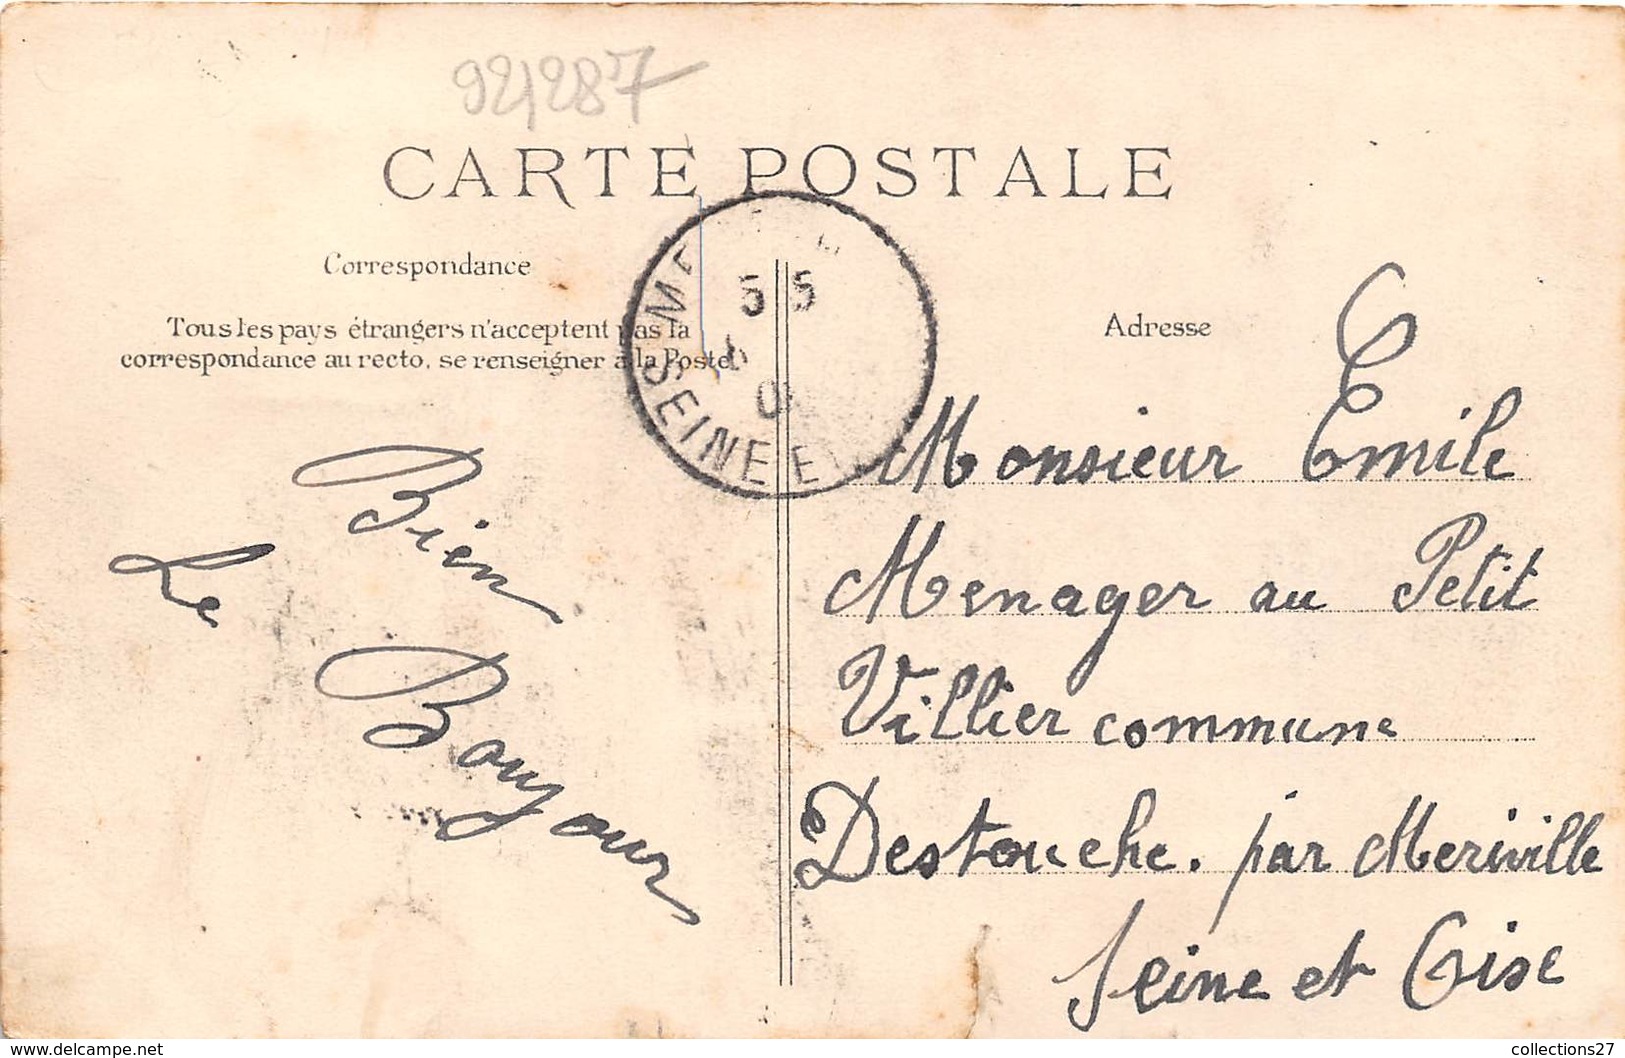 92/287
CARTE POSTALE
Correspondance
Tous les pays étrangers n'acceptent pas la
correspondance au recto, se renseigner à la Poste
Bien
Le
Bonjour
5 5
SEINE E
Adresse
Monsieur Emile
Menager au Petit
Villier commune
Destouche. par Meriville
Seine et Oise
collections27